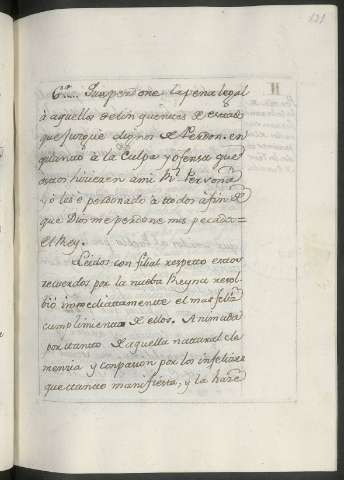 121
6.ª Que perdone la pena legal
à aquellos delinquentes de estado
que juzgue dignos de Perdon. en
quanto à la Culpa y ofensa que
estos hicieren ami R.l Persona
yo las è perdonado à todos afin de
que Dios me perdone mis pecados=
El Rey.
Leidos con filial respetto estos
recuerdos por la nueba Reyna resol-
bió immediattamente el mas feliz
cumplimientto de ellos. Animada
por ttanto de aquella nattural cle
mencia y compasion por los infelizes
que ttanto manifiesta, y la hare